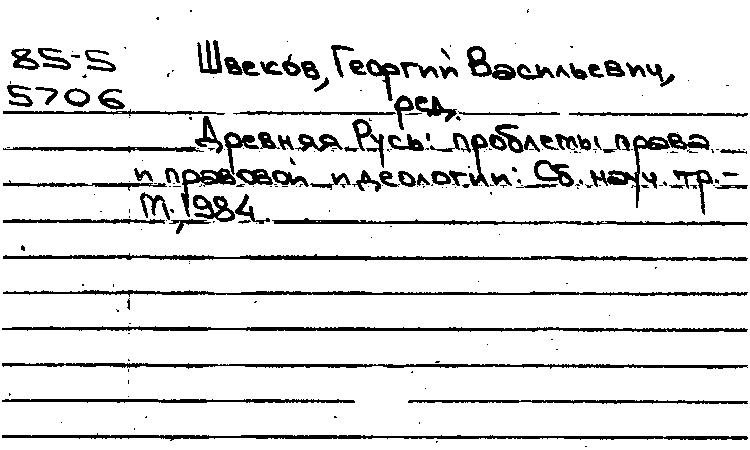 85-5 Швеков, Георгий Васильевич,
5706 ред.
Древняя Русь: проблемы права
и правовой идеологии: Сб. науч. тр.-
М., 1984.